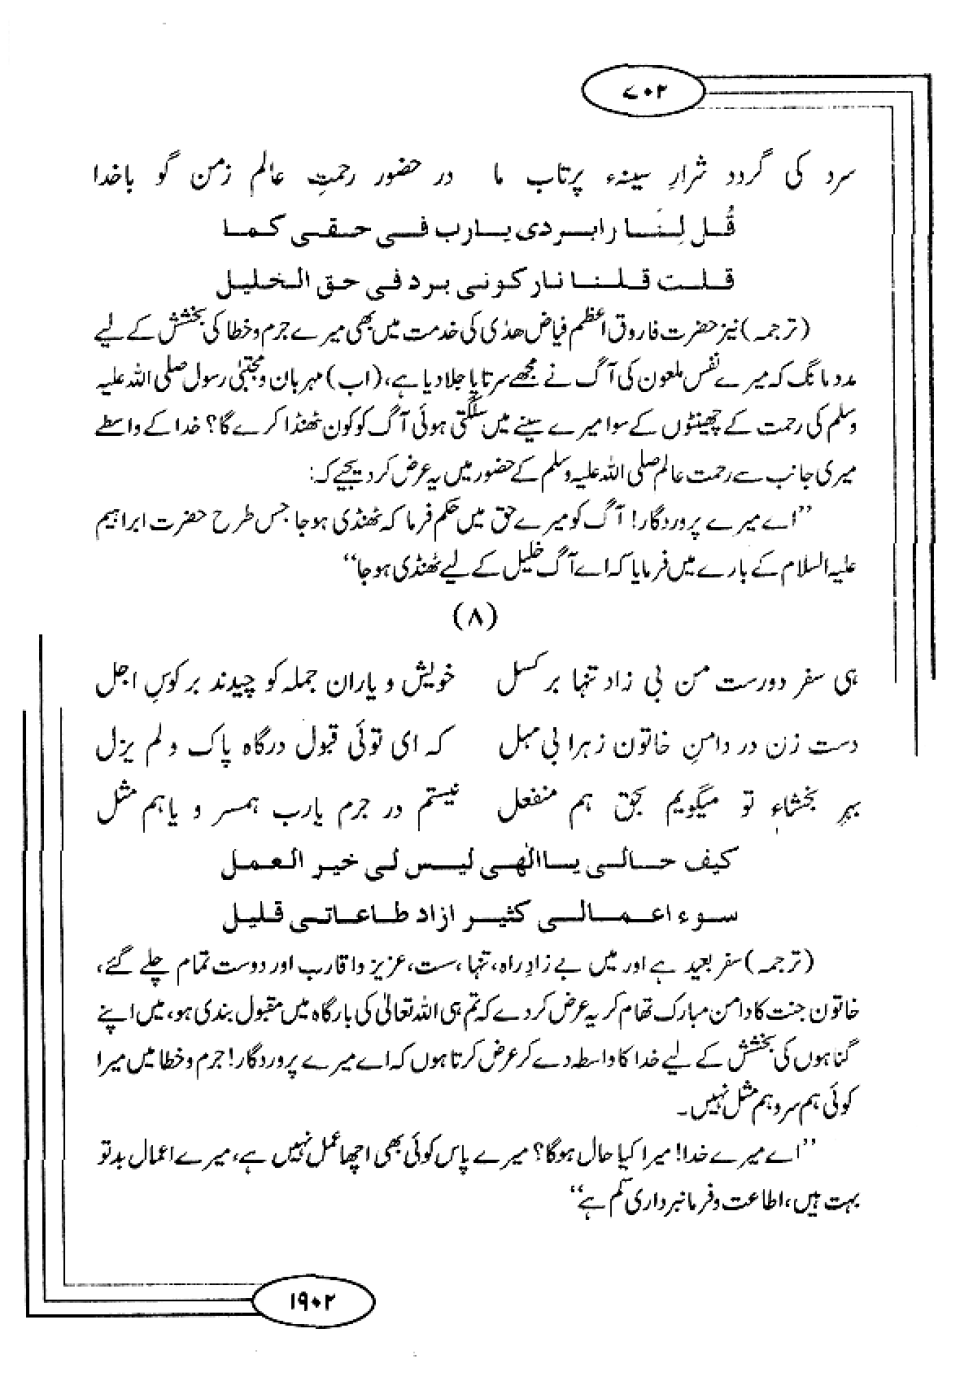 ۷۰۲
سرد کی گردد شرارِ سینۂ پرتاب ما در حضور رحمتِ عالم زمن گو باخدا
قُل لِنَا رابردی یارب فی حقی کما
قلت قلنا نار کونی برد فی حق الخلیل
(ترجمہ) نیز حضرت فاروق اعظم فیاض ھدٰی کی خدمت میں بھی میرے جرم و خطا کی بخشش کے لیے
مدد مانگ کہ میرے نفس ملعون کی آگ نے مجھے سرتاپا جلا دیا ہے، (اب) مہربان و مجتبیٰ رسول صلی اللہ علیہ
وسلم کی رحمت کے چھینٹوں کے سوا میرے سینے میں سلگتی ہوئی آگ کو کون ٹھنڈا کرے گا؟ خدا کے واسطے
میری جانب سے رحمت عالم صلی اللہ علیہ وسلم کے حضور میں یہ عرض کر دیجیے کہ:
”اے میرے پروردگار! آگ کو میرے حق میں حکم فرما کہ ٹھنڈی ہو جا جس طرح حضرت ابراہیم
علیہ السلام کے بارے میں فرمایا کہ اے آگ خلیل کے لیے ٹھنڈی ہو جا“
(۸)
ہی سفر دورست من بی زاد تنہا بر کسل خویش و یاران جملہ کو چیدند بر کوسِ اجل
دست زن در دامنِ خاتون زہرا بی مہل کہ ای توئی قبول درگاہ پاک و لم یزل
بہر بخشاءِ تو میگویم بحق ہم منفعل نیستم در جرم یارب ہمسر و یاہم مثل
کیف حالی یاالٰھی لیس لی خیر العمل
سوء اعمالی کثیر ازاد طاعاتی قلیل
(ترجمہ) سفر بعید ہے اور میں بے زادِ راہ، تنہا، ست، عزیز و اقارب اور دوست تمام چلے گئے،
خاتون جنت کا دامن مبارک تھام کر یہ عرض کر دے کہ تم ہی اللہ تعالیٰ کی بارگاہ میں مقبول بندی ہو، میں اپنے
گناہوں کی بخشش کے لیے خدا کا واسطہ دے کر عرض کرتا ہوں کہ اے میرے پروردگار! جرم و خطا میں میرا
کوئی ہم سر و ہم مثل نہیں۔
”اے میرے خدا! میرا کیا حال ہوگا؟ میرے پاس کوئی بھی اچھا عمل نہیں ہے، میرے اعمال بد تو
بہت ہیں، اطاعت و فرمانبرداری کم ہے“
۱۹۰۲